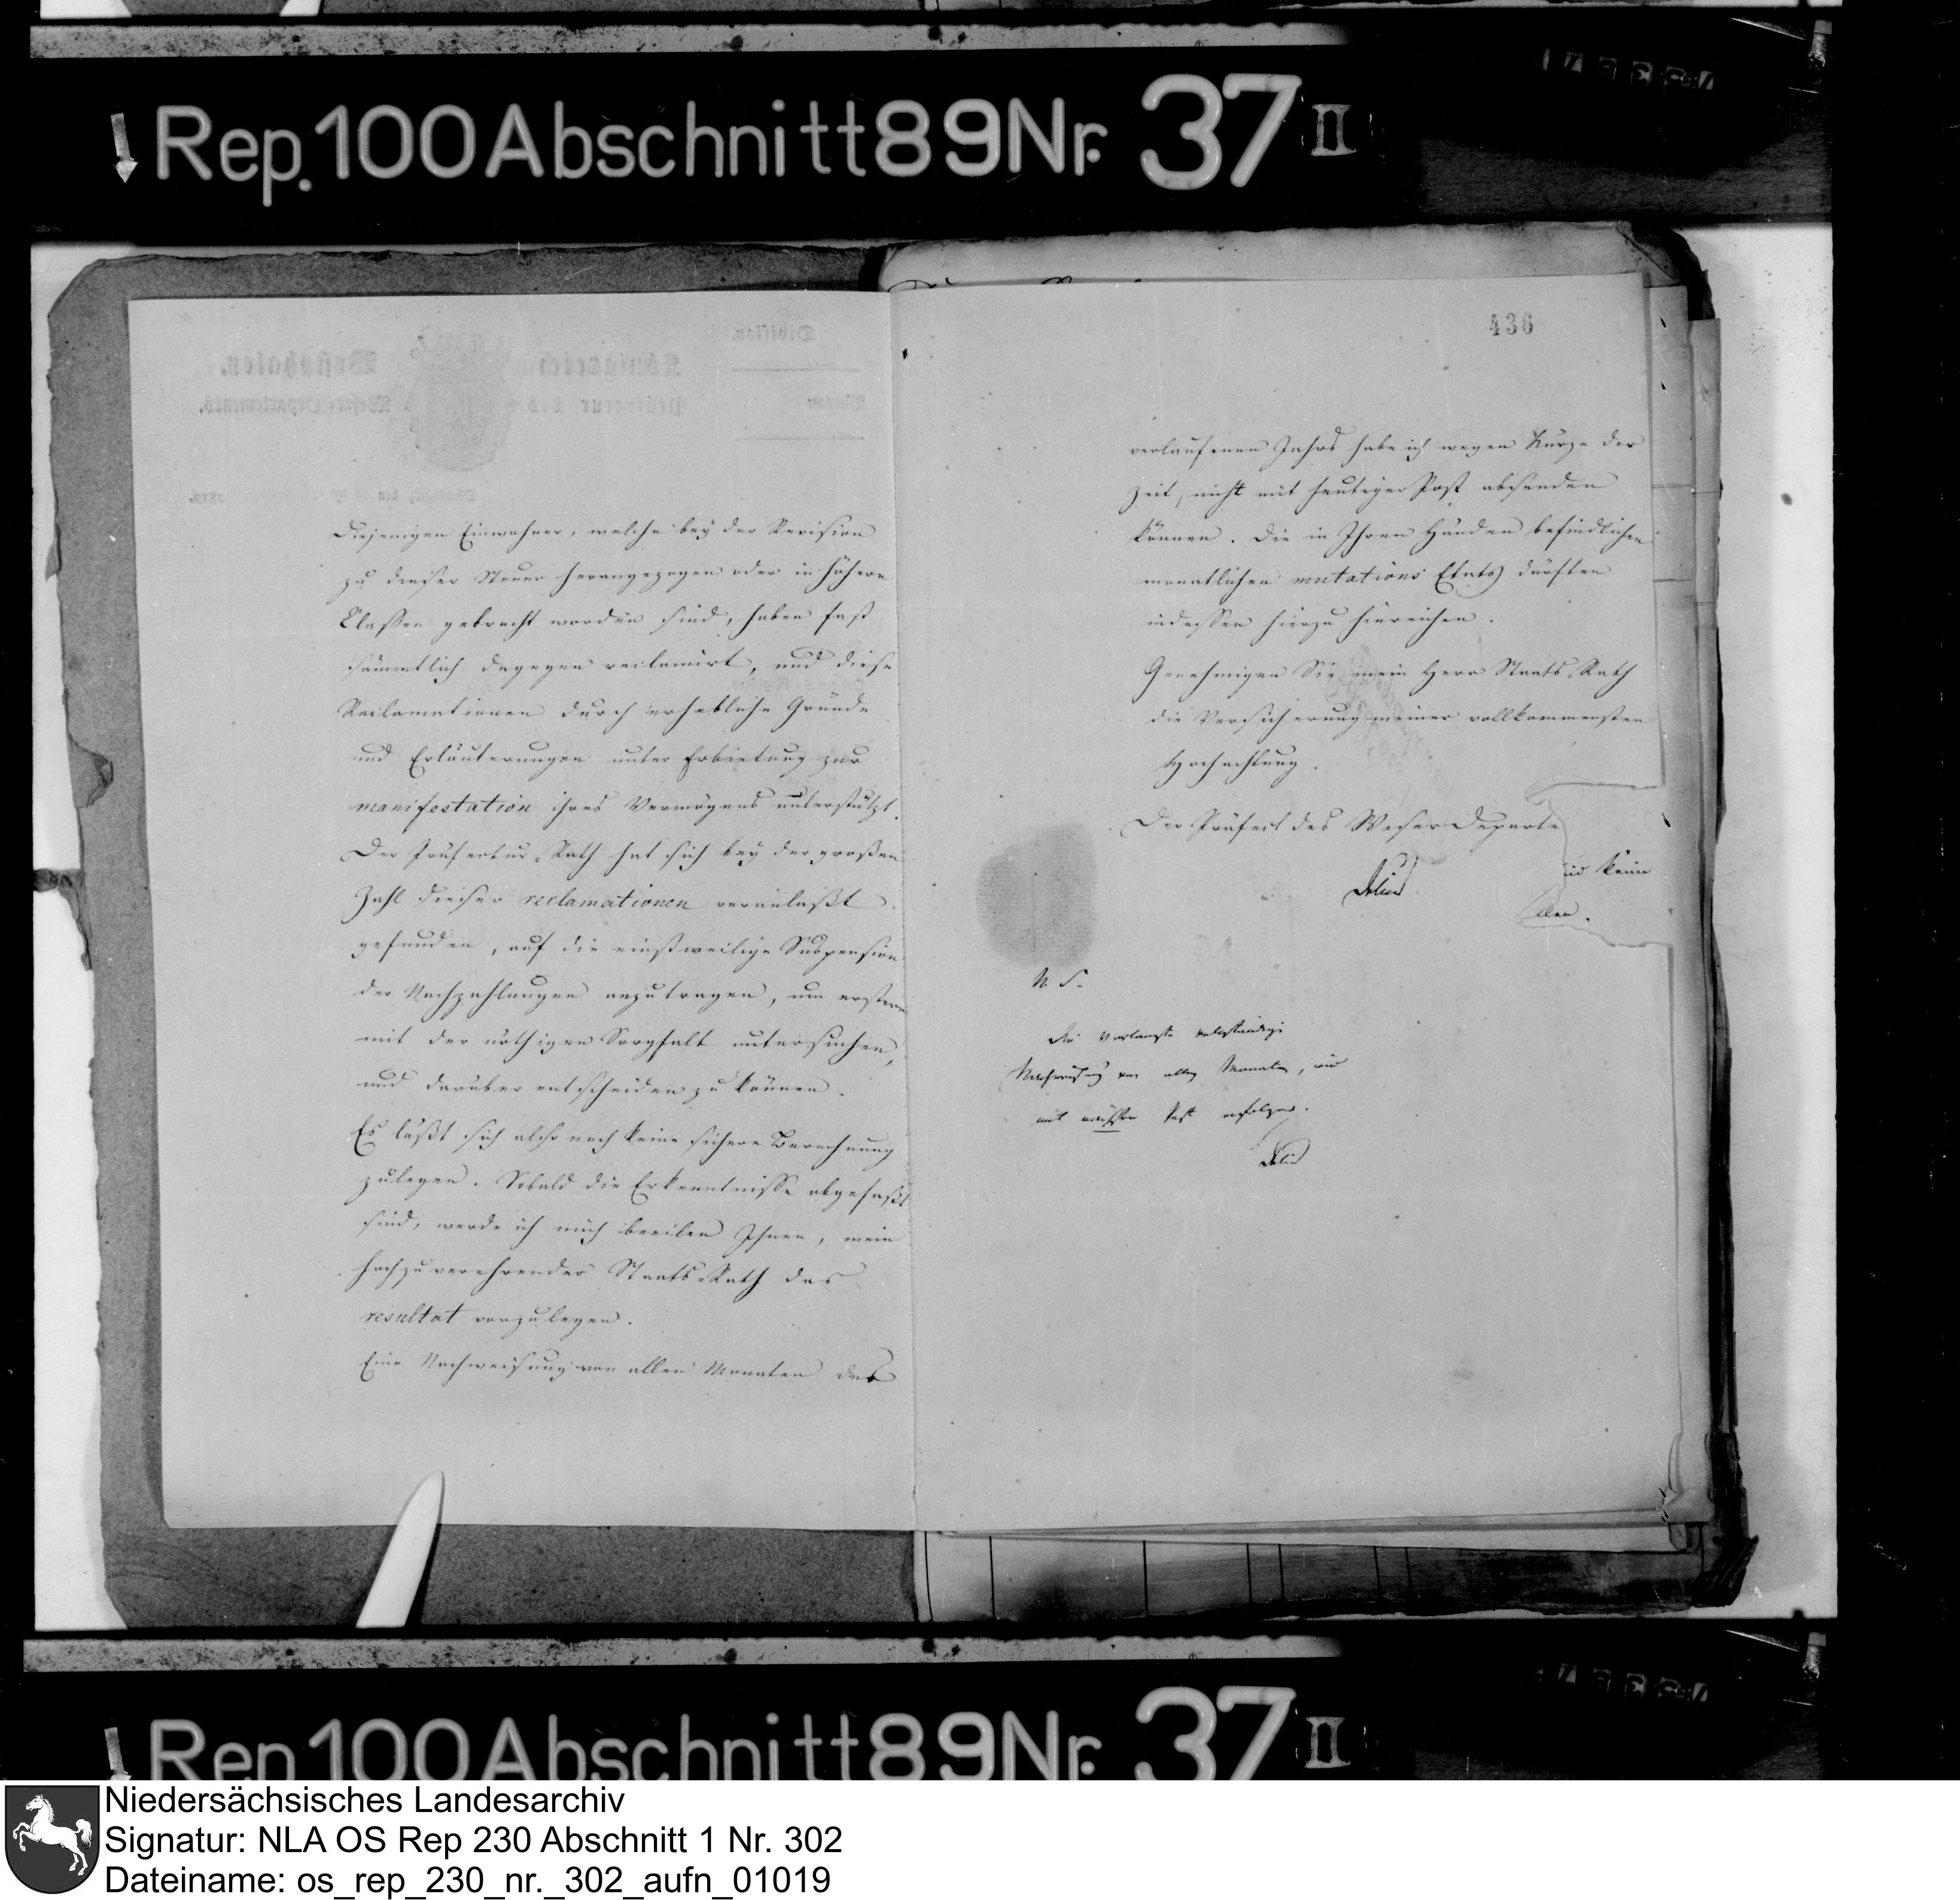 Rep. 100 Abschnitt 89 Nr. 37 II
Diejenigen Einwohner, welche bey der Revision
zu dieser Steuer herangezogen oder in höhere
Classen gebracht worden sind, haben fast
sämmtlich dagegen reclamirt, und diese
Reclamationen durch erhebliche Gründe
und Erläuterungen unter Erbietung zur
manifestation ihres Vermögens unterstützt.
Der Präfectur-Rath hat sich bey der großen
Zahl dieser reclamationen veranlaßt
gefunden, auf die einstweilige Suspension
der Nachzahlungen anzutragen, um erstere
mit der nöthigen Sorgfalt untersuchen,
und darüber entscheiden zu können.
Es läßt sich also noch keine sichere Berechnung
zulegen. Sobald die Erkenntnisse abgefaßt
sind, werde ich mich beeilen Ihnen, mein
hochzuverehrender Staats-Rath das
resultat vorzulegen.
Eine Nachweisung von allen Monaten des
436
verlaufenen Jahrs habe ich wegen Kürze der
Zeit, nicht mit heutiger Post absenden
können. Die in Ihren Händen befindlichen
monatlichen mutations Etats dürften
indessen hierzu hinreichen.
Genehmigen Sie mein Herr Staats-Rath
die Versicherung meiner vollkommensten
Hochachtung.
Der Präfect des Weser Departe
Delius
keine
llen.
N. S.
Die verlangte vollständige
Nachweisung von allen Monaten, wird
mit nächster Post erfolgen.
Delius
Rep. 100 Abschnitt 89 Nr. 37 II
Niedersächsisches Landesarchiv
Signatur: NLA OS Rep 230 Abschnitt 1 Nr. 302
Dateiname: os_rep_230_nr._302_aufn_01019